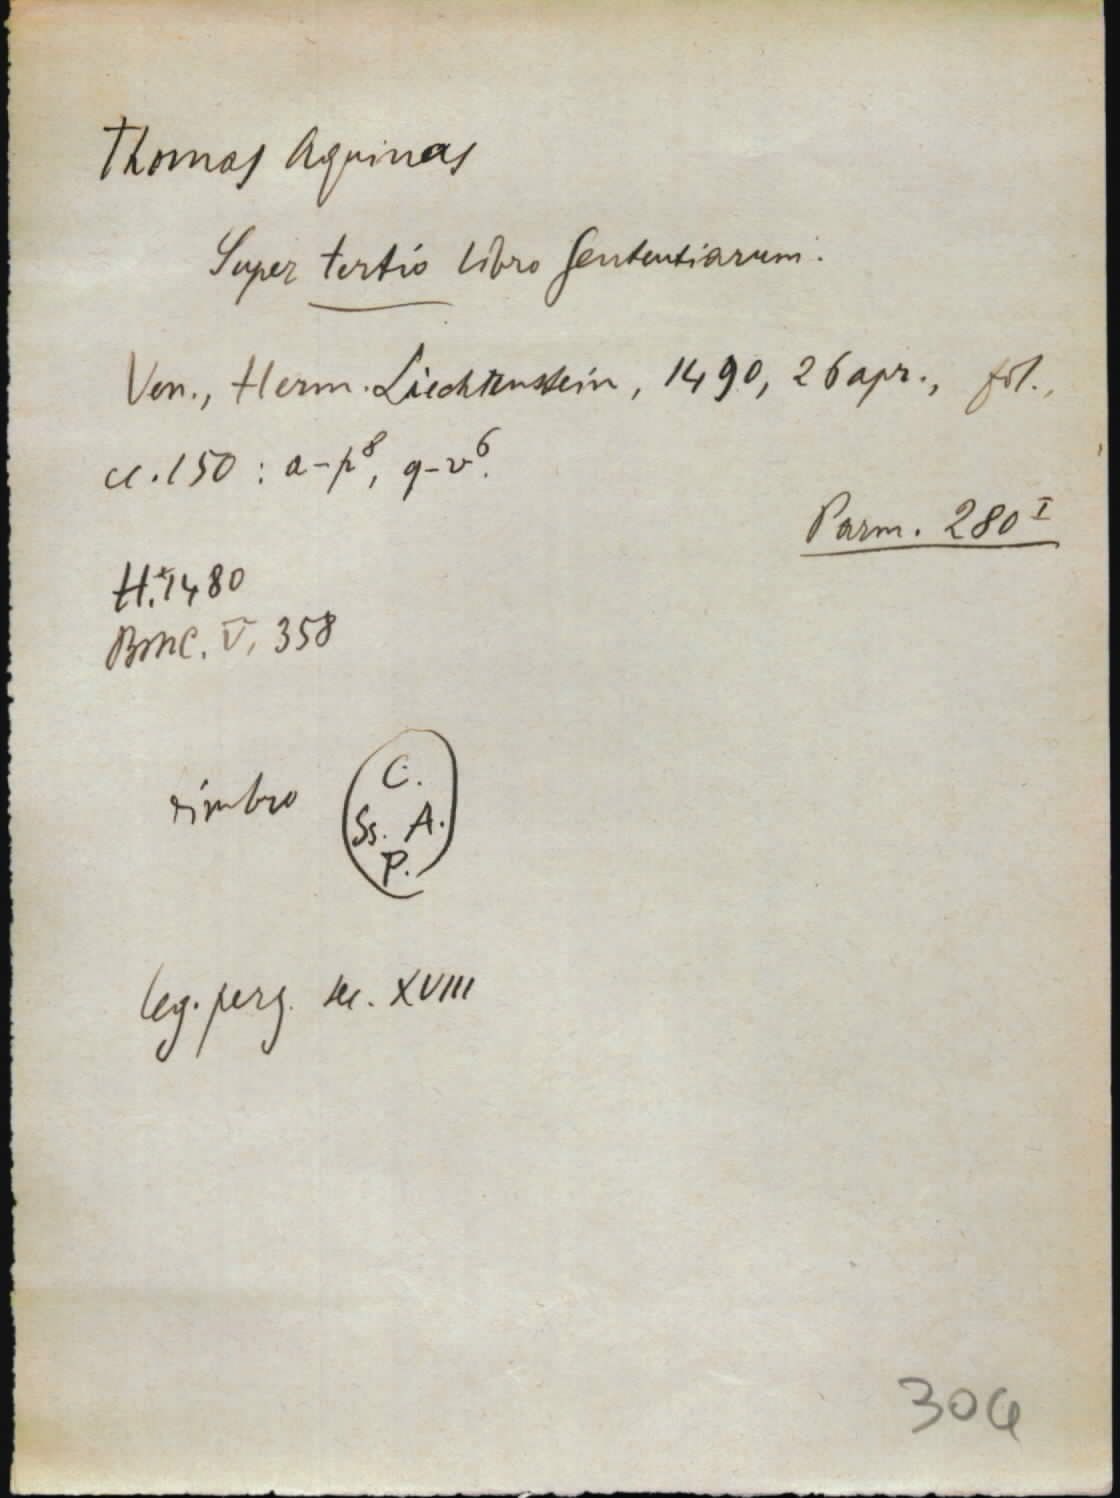 Thomas Aquinas
Super tertio libro Sententiarum.
Ven., Herm. Liechtenstein, 1490, 26 apr., fol.,
cc. 150 : a-p⁸, q-v⁶.
Parm. 280 I
H.*1480
BMC. V, 358
timbro
C.
Ss. A.
P.
leg. perg. sec. XVIII
304